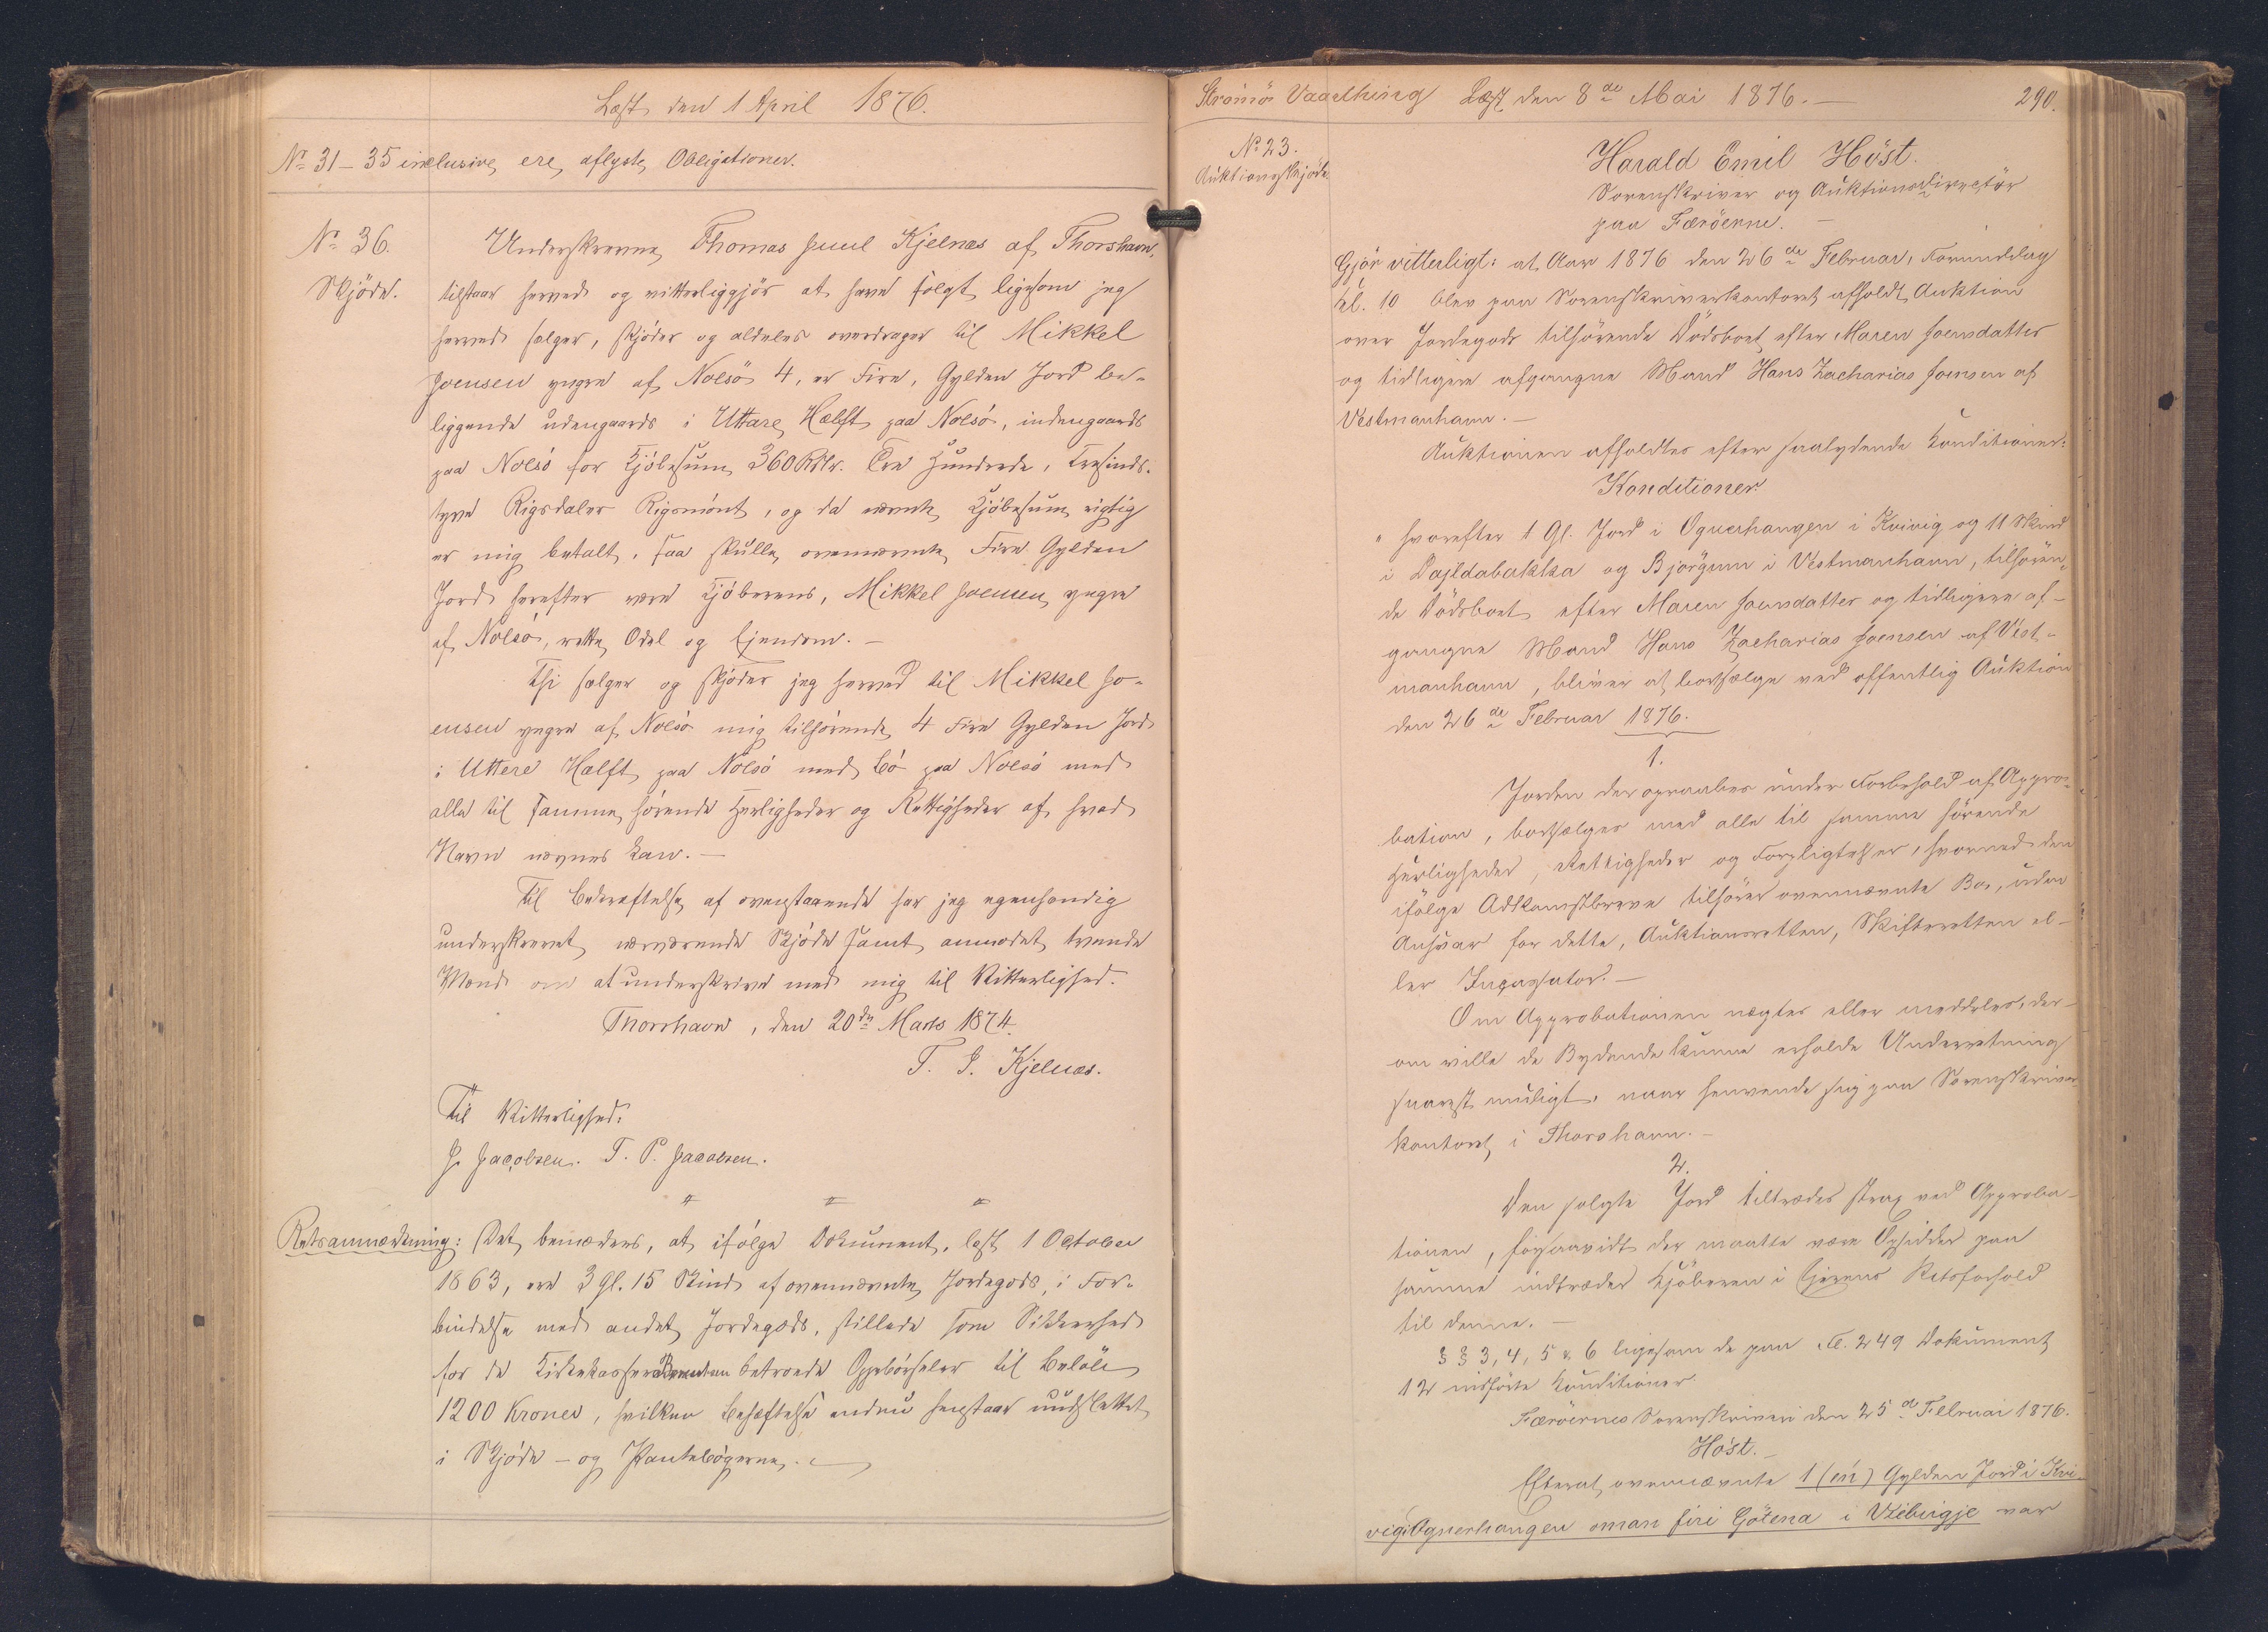 Læst den 1 April 1876.
No 31-35 inclusive, ere aflyste Obligationer.
No 36.
Skjöde.
Underskrevne Thomas Juul Kjelnæs af Thorshavn,
tilstaar herved og vitterliggjör at have solgt, ligesom jeg
herved sælger, skjöder og aldeles overdrager til Mikkel
Joensen yngre af Nolsö 4, er Fire, Gylden Jord be-
liggende udengaards i Uttare Hælft paa Nolsö, indengaards
paa Nolsö for Kjöbesum 360 Rdlr. Tre Hundrede, Tresinds-
tyve Rigsdaler Rigsmönt, og da nævnte Kjöbesum rigtig
er mig betalt, saa skulle ovennævnte Fire Gylden
Jord herefter være Kjöberens, Mikkel Joensen yngre
af Nolsö, rette Odel og Ejendom. -
Thi sælger og skjöder jeg herved til Mikkel Jo-
ensen yngre af Nolsö mig tilhörende 4 Fire Gylden Jord
i Uttere Hælft paa Nolsö med Bö paa Nolsö med
alle til samme hörende Herligheder og Rettigheder af hvad
Navn nævnes kan. -
Til Bekræftelse af ovenstaaende har jeg egenhændig
underskrevet nærværende Skjöde samt anmodet tvende
Mænd om at underskrive med mig til Vitterlighed.
Thorshavn, den 20de Marts 1874.
T. J. Kjelnæs.
Til Vitterlighed:
J. Jacobsen. T. P. Jacobsen.
Retsanmærkning: Det bemærkes, at ifölge Dokument, læst 1 October
1863, ere 3 Gl. 15 Skind af ovennævnte Jordegods, i For-
bindelse med andet Jordegods, stillede som Sikkerhed
for de betroede Oppebörseler til Belöb
1200 Kroner, hvilken Behæftelse endnu henstaar uudslettet
i Skjöde- og Pantebögerne. -
Strömö Vaarthing Læst den 8de Mai 1876. - 290.
No 23.
Auktionsskjöde.
Harald Emil Höst.
Sorenskriver og Auktionsdirectör
paa Færöerne. -
Gjör vitterligt: at Aar 1876 den 26de Februar, Formiddag
Kl. 10 blev paa Sorenskriverkontoret afholdt Auktion
over Jordegods tilhörende Dödsboet efter Maren Joensdatter
og tidligere afgangne Mand Hans Zacharias Joensen af
Vestmanhavn. -
Auktionen afholdtes efter saalydende Konditioner:
Konditioner
" hvorefter 1 Gl. Jord i Ognerhangen i Kvivig og 11 Skind
i Dajldabakka og Björgum i Vestmanhavn, tilhören-
de Dödsboet efter Maren Joensdatter og tidligere af-
gangne Mand Hans Zacharias Joensen af Vest-
manhavn, bliver at bortsælge ved offentlig Auktion
den 26de Februar 1876.
1.
Jorden der opraabes under Forbehold af Appro-
bation, bortsælges med alle til samme hörende
Herligheder, Rettigheder og Forpligtelser, hvormed den
ifölge Adkomstbreve tilhörer ovennævnte Bo, uden
Ansvar for dette, Auktionsretten, Skifteretten el-
ler Incassator. -
Om Approbationen nægtes eller meddeles, der-
om ville de Bydende kunne erholde Underretning
snarest muligt, naar henvende sig paa Sorenskriver-
kontoret i Thorshavn. -
2.
Den solgte Jord tiltrædes strax ved Approba-
tionen, forsaavidt der maatte være Opsidder paa
samme indtræder Kjöberen i Ejerens Retsforhold
til denne. -
§ § 3, 4, 5 & 6 ligesom de paa Fol. 249 Dokument
12 indförte Konditioner
Færöernes Sorenskriveri den 25de Februar 1876.
Höst. -
Efterat ovennævnte 1 (en) Gylden Jord i Kvi-
vig i Ognerhangen oman firi Götena i Vælebirgje var